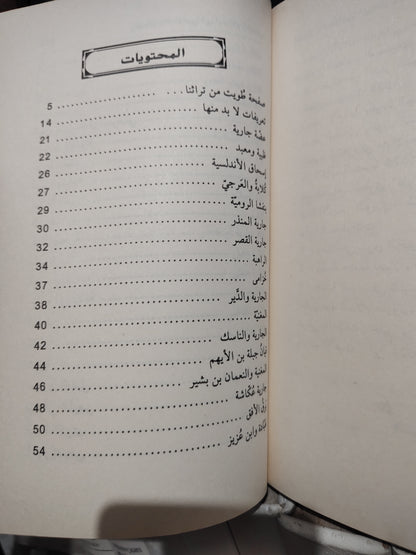 المحتويات
صفحة طُويت من تراثنا... ........ 5
تعريفات لا بد منها ........ 14
عفّة جارية ........ 21
ظبية ومعبد ........ 22
إسحاق الأندلسية ........ 26
كُلابةُ والعَرجيّ ........ 27
بنفشا الروميّة ........ 29
جارية المنذر ........ 30
جارية القصر ........ 32
الراهبة ........ 34
خُزامى ........ 37
الجارية والدَّير ........ 38
المغنيّة ........ 40
الجارية والناسك ........ 42
قيانُ جبلة بن الأيهم ........ 44
المغنية والنعمان بن بشير ........ 46
جارية عُكّاشة ........ 48
الأفق ........ 50
وابن عُزيز ........ 54